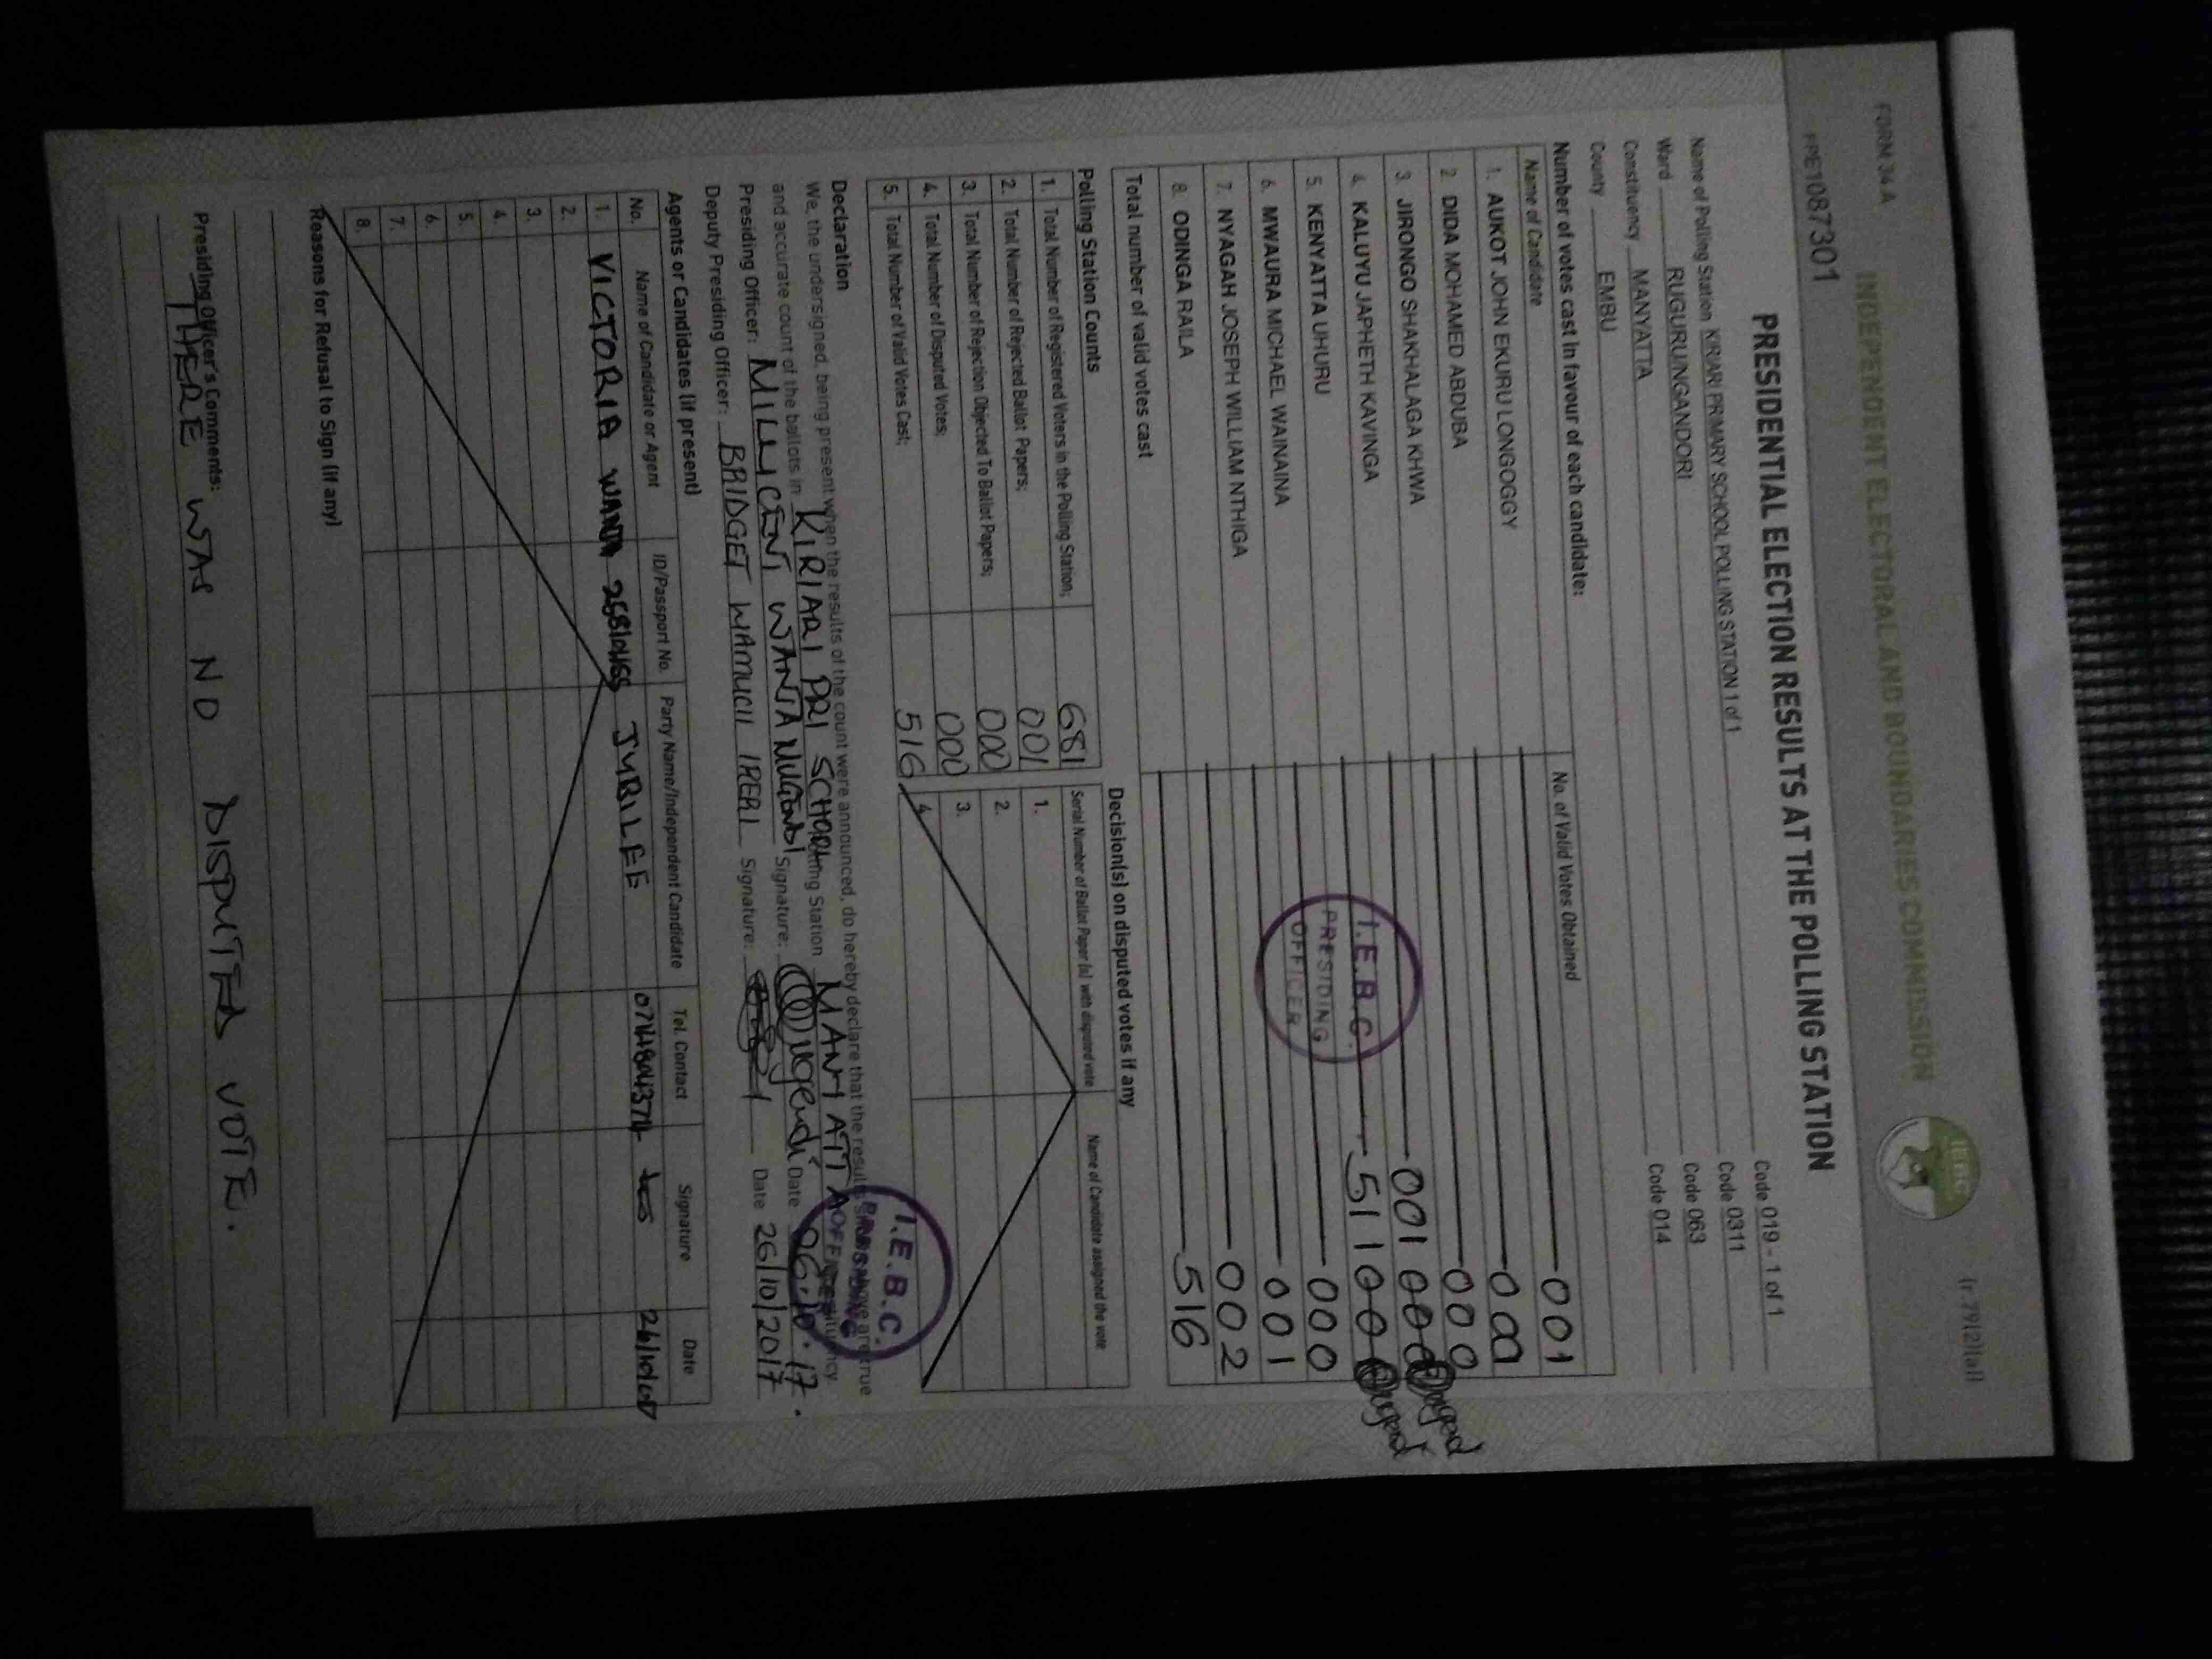 FORM 34 A (r 79(2)(a))
INDEPENDENT ELECTORAL AND BOUNDARIES COMMISSION
IEBC
PRESIDENTIAL ELECTION RESULTS AT THE POLLING STATION
Name of Polling Station KIRIARI PRIMARY SCHOOL POLLING STATION 1 of 1 Code 019 - 1 of 1
Ward RUGURU/NGANDORI Code 0311
Constituency MANYATTA Code 063
County EMBU Code 014
Number of votes cast in favour of each candidate:
Name of Candidate No. of Valid Votes Obtained
1. AUKOT JOHN EKURU LONGOGGY 001
2. DIDA MOHAMED ABDUBA 000
3. JIRONGO SHAKHALAGA KHWA 000
4. KALUYU JAPHETH KAVINGA 001 000
5. KENYATTA UHURU 511
6. MWAURA MICHAEL WAINAINA 000
7. NYAGAH JOSEPH WILLIAM NTHIGA 001
8. ODINGA RAILA 002
Total number of valid votes cast 516
I.E.B.C.
PRESIDING
OFFICER
Polling Station Counts
1. Total Number of Registered Voters in the Polling Station; 681
2. Total Number of Rejected Ballot Papers; 001
3. Total Number of Rejection Objected To Ballot Papers; 000
4. Total Number of Disputed Votes; 000
5. Total Number of Valid Votes Cast; 516
Decision(s) on disputed votes if any
Serial Number of Ballot Paper (s) with disputed vote Name of Candidate assigned the vote
1.
2.
3.
4.
Declaration
We, the undersigned, being present when the results of the count were announced, do hereby declare that the results shown above are true
and accurate count of the ballots in KIRIARI PRI SCHOOL Polling Station MANYATTA Constituency.
Presiding Officer: MILLICENT WANJA Signature: Date 26.10.17.
Deputy Presiding Officer: BRIDGET WAMUCII IRERI Signature: Date 26/10/2017
I.E.B.C.
PRESIDING
OFFICER
Agents or Candidates (if present)
No. Name of Candidate or Agent ID/Passport No. Party Name/Independent Candidate Tel. Contact Signature Date
1. VICTORIA JUBILEE
2.
3.
4.
5.
6.
7.
8.
Reasons for Refusal to Sign (if any)
Presiding Officer's Comments:
THERE WAS NO DISPUTED VOTE.